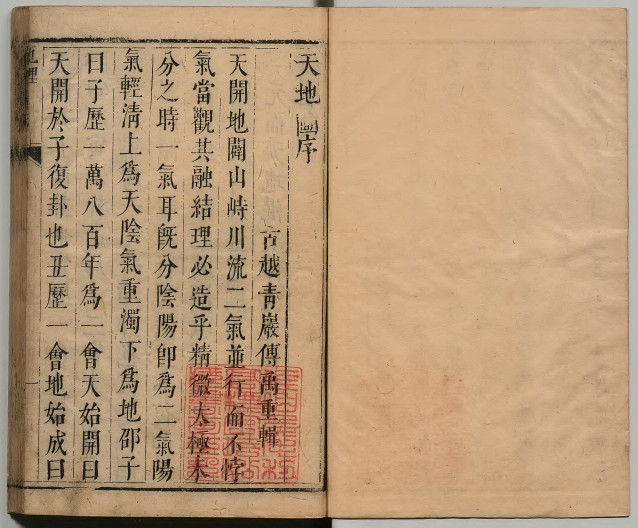 天地圖序
古越青巖傳禹重輯
天開地闢山峙川流二氣並行而不悖
氣當觀其融結理必造乎精微太極未
分之時一氣耳旣分陰陽卽爲二氣陽
氣輕淸上爲天陰氣重濁下爲地邵子
曰子歷一萬八百年爲一會天始開曰
天開於子復卦也丑歷一會地始成曰
地理